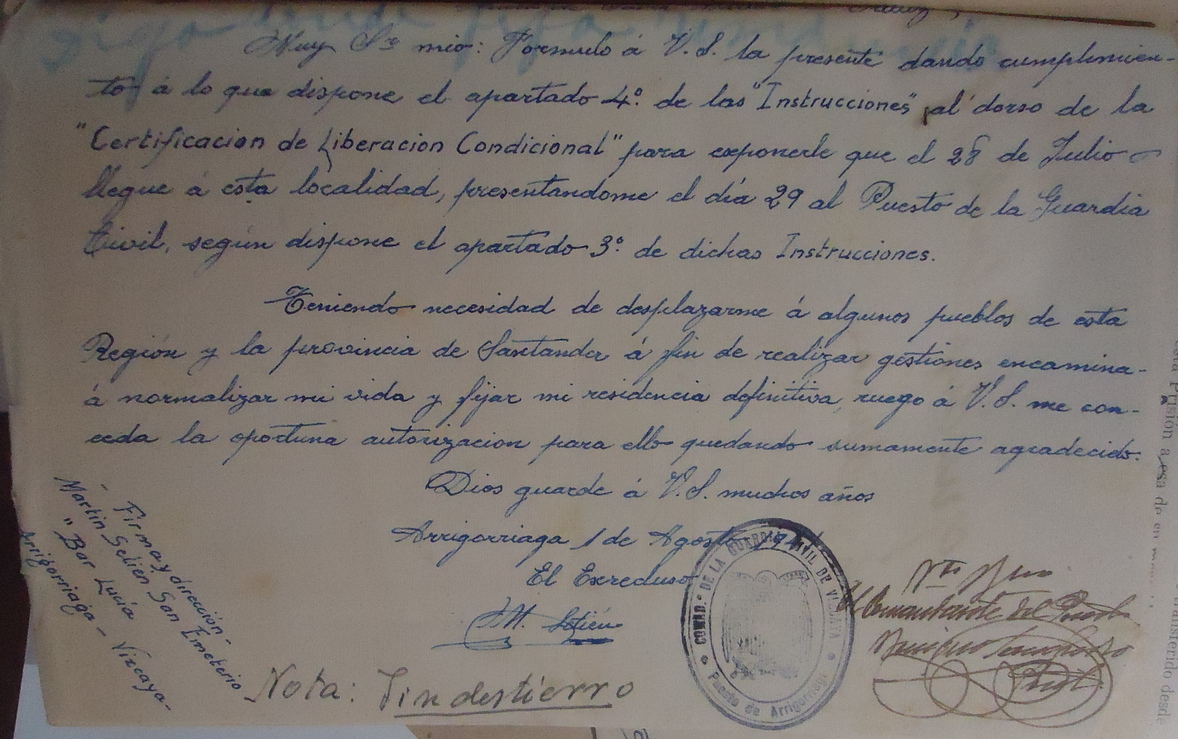 Muy Sr mio: Formulo á V.S. la presente dando cumplimien-
to á lo que dispone el apartado 4º. de las "Instrucciones" al dorso de la
"Certificacion de Liberacion Condicional" para exponerle que el 28 de Julio
llegue á esta localidad, presentandome el dia 29 al Puesto de la Guardia
Civil, según dispone el apartado 3º. de dichas Instrucciones.
Teniendo necesidad de desplazarme á algunos pueblos de esta
Región y la provincia de Santander á fin de realizar gestiones encamina-
á normalizar mi vida y fijar mi residencia definitiva, ruego á V.S. me con-
ceda la oportuna autorizacion para ello quedando sumamente agradecido.
Dios guarde á V.S. muchos años
Arrigorriaga 1 de Agosto
El Exrecluso
M. Setién
- Firma y dirección -
Martin Setien San Emeterio
"Bar Lucia"
Arrigorriaga - Vizcaya-
Nota: Sin destierro
COMAD.ª DE LA GUARDIA CIVIL DE VIZCAYA
Puesto de Arrigorriaga
El Comandante del Puesto